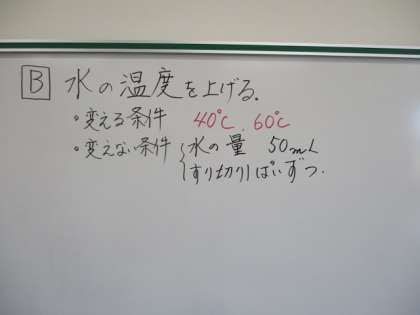 B 水の温度を上げる.
・変える条件 40℃ 60℃
・変えない条件 水の量 50mL
すり切り1ぱいずつ.